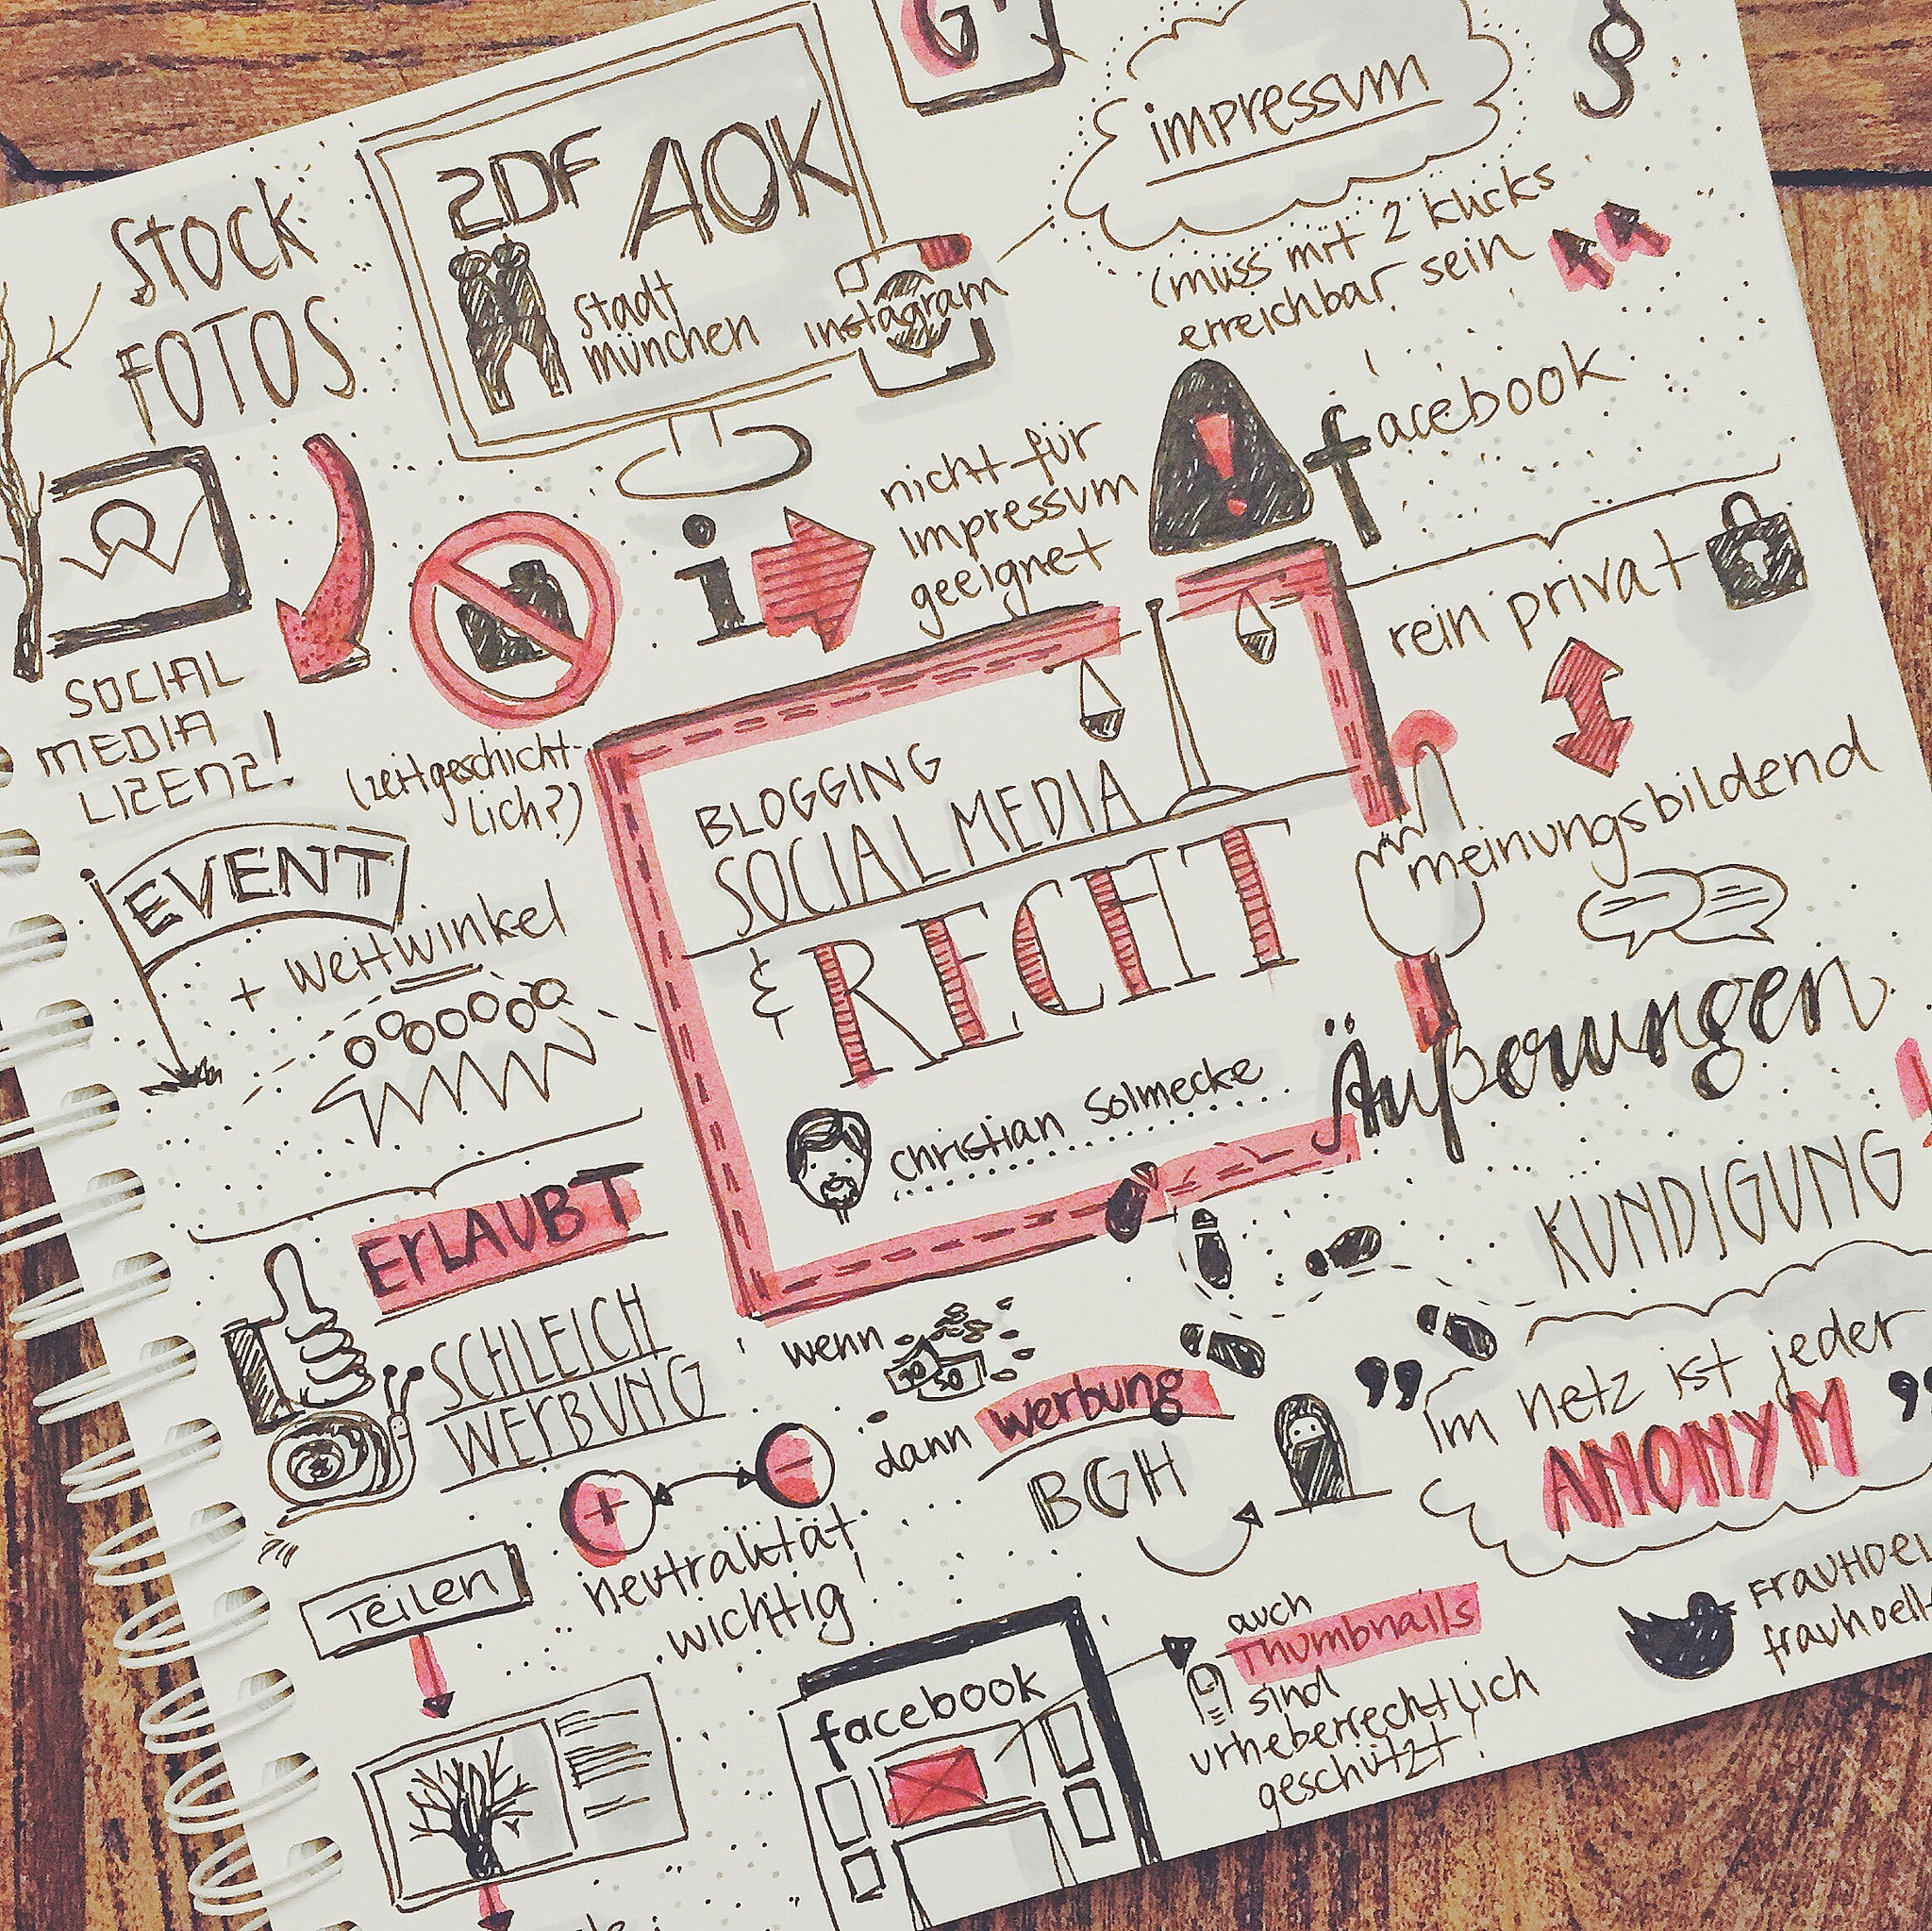 G
impressum
(muss mit 2 klicks
erreichbar sein
STOCK
FOTOS
ZDF AOK
stadt
münchen
instagram
nicht für
impressum
geeignet
facebook
rein privat
meinungsbildend
SOCIAL
MEDIA
LIZENZ!
(zeitgeschicht-
lich?)
EVENT
+ weitwinkel
ERLAUBT
BLOGGING
SOCIAL MEDIA
& RECHT
christian Solmecke
Äußerungen
KÜNDIGUNG
SCHLEICH
WERBUNG
wenn
50
dann werbung
BGH
im netz ist jeder
ANONYM
+
-
neutralität
wichtig!
Teilen
facebook
auch
Thumbnails
sind
urheberrechtlich
geschützt!